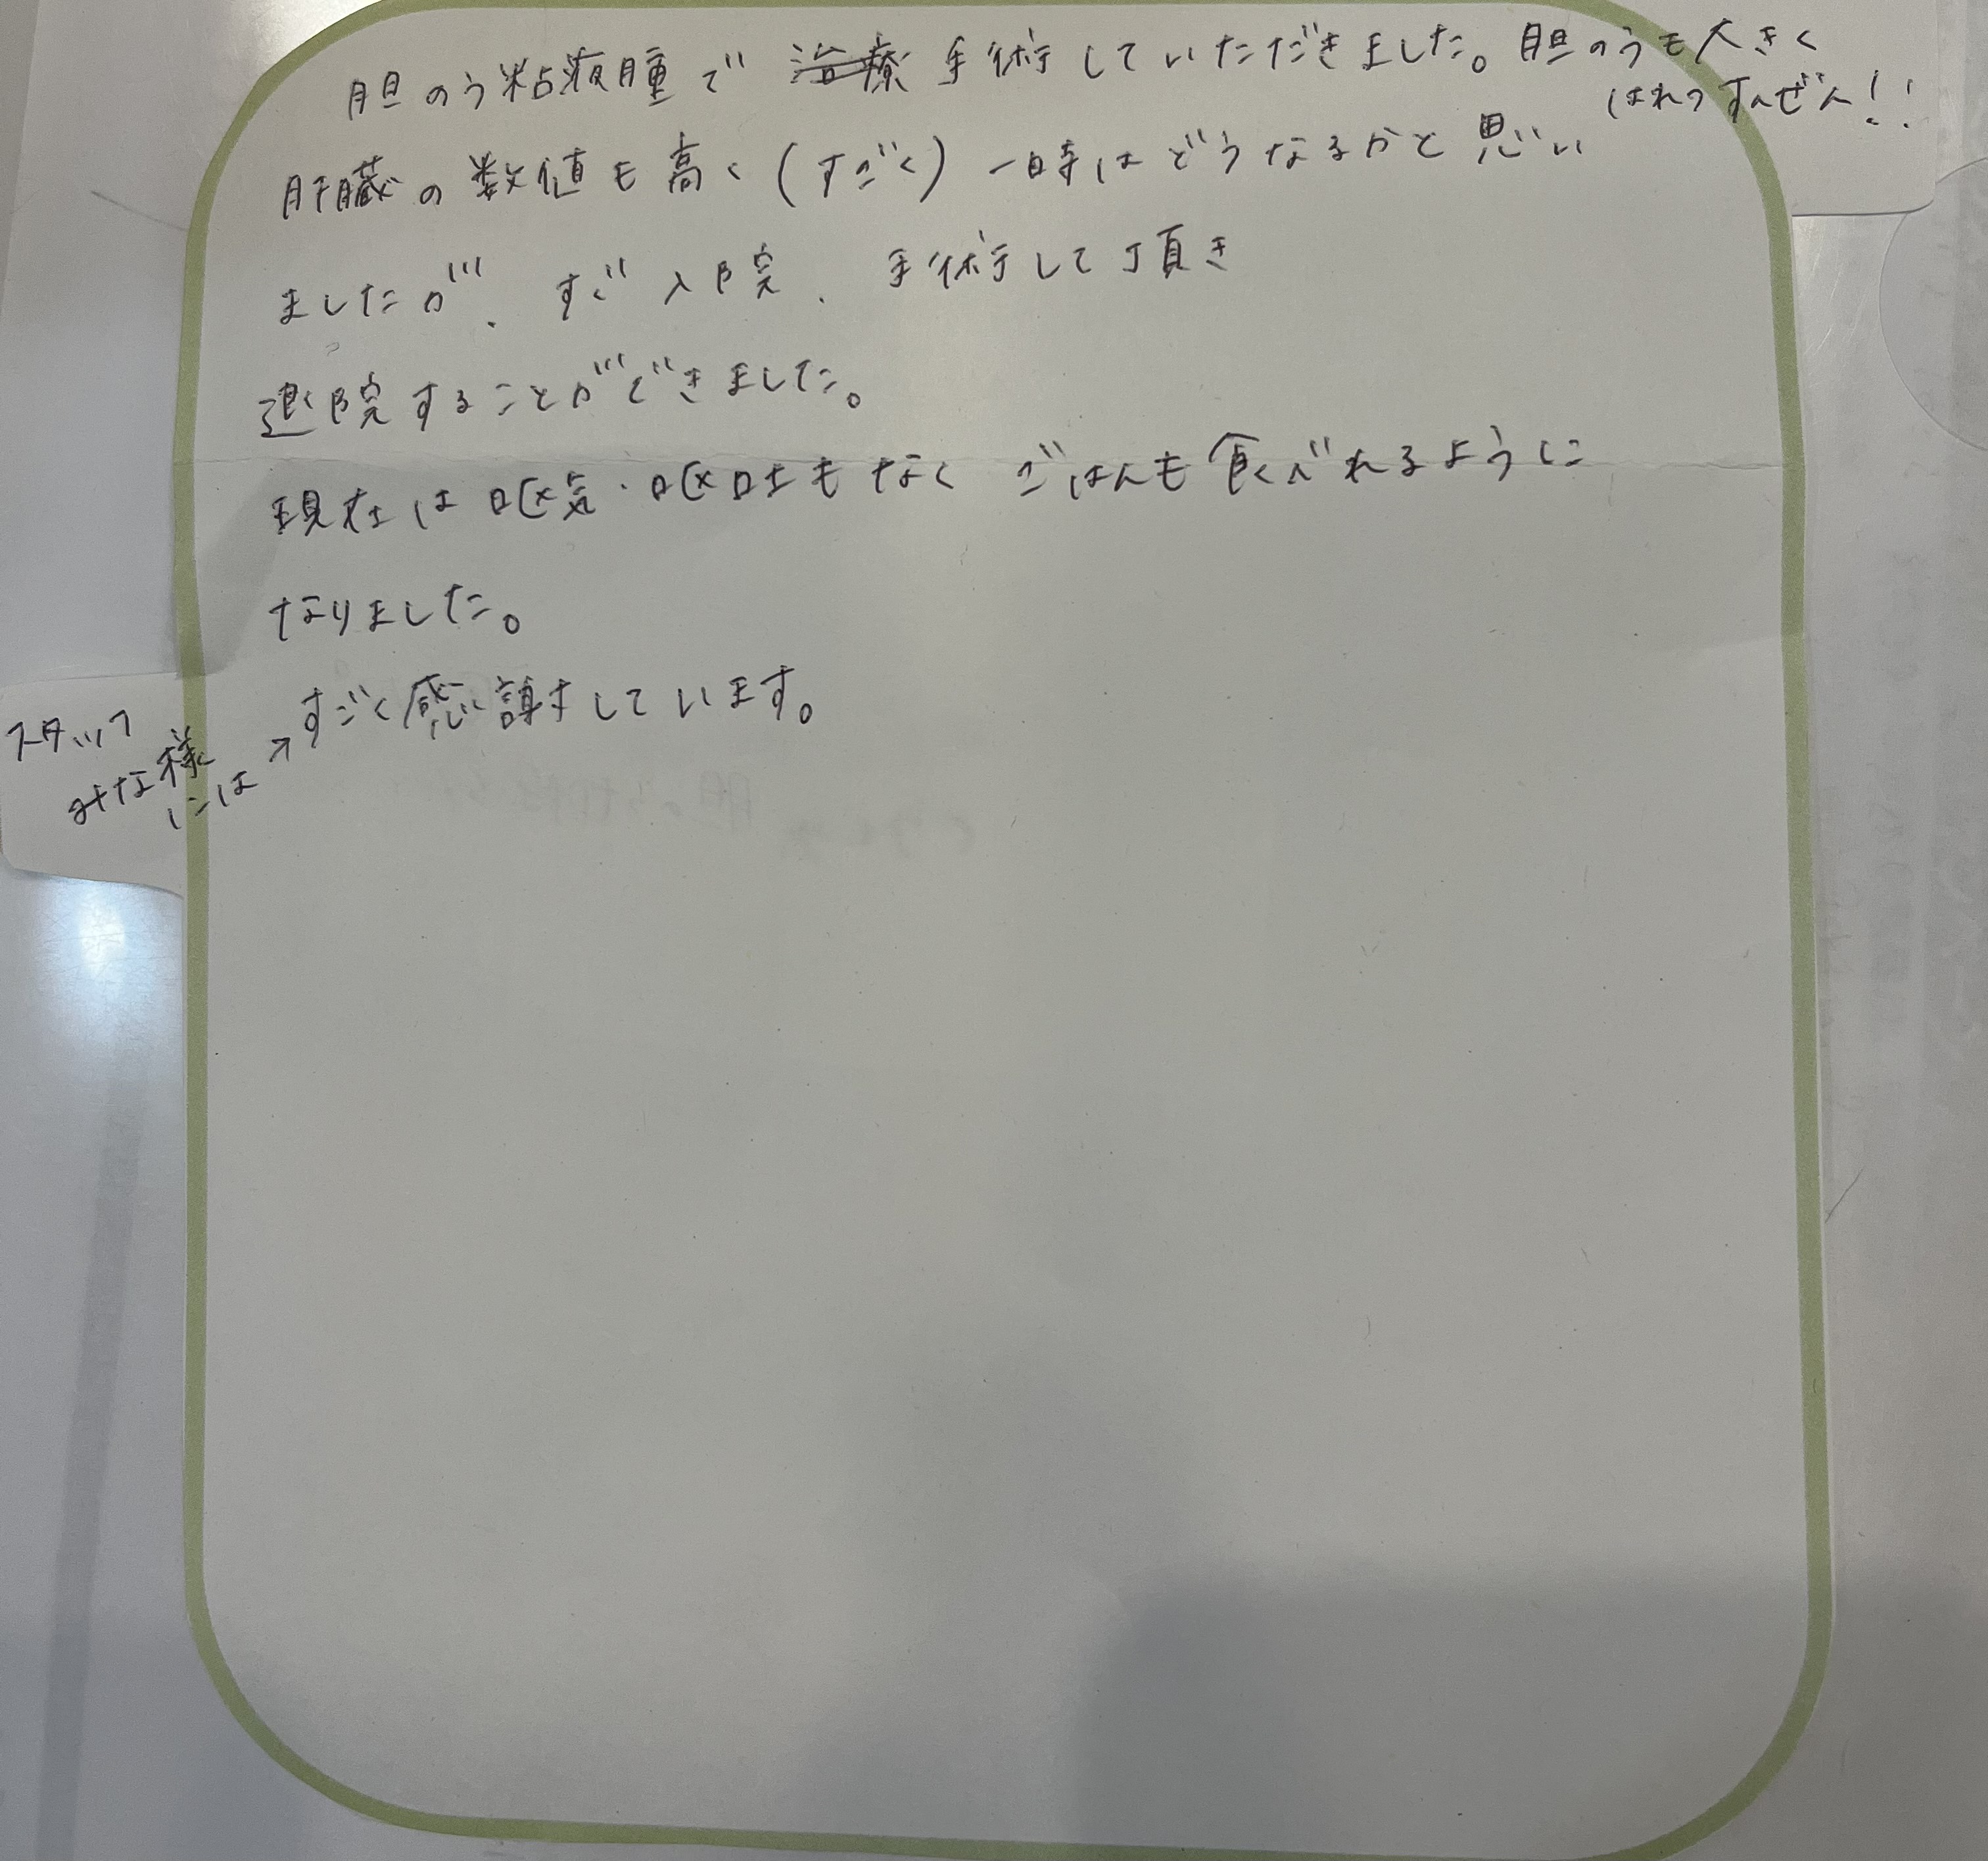 胆のう粘液腫で 治療 手術していただきました。胆のうも大きく
はれつすんぜん!!
肝臓の数値も高く(すごく)一時はどうなるかと思い
ましたが、すぐ入院、手術して頂き
退院することができました。
現在は嘔気・嘔吐もなく ごはんも食べれるように
なりました。
スタッフ
みな様
には↗すごく感謝しています。